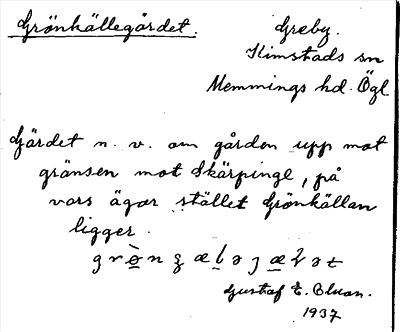 Grönkällegärdet.
Greby.
Kimstads sn
Memmings hd. Ögl.
Gärdet n. v. om gården upp mot
gränsen mot Skärpinge, på
vars ägor stället Grönkällan
ligger.
Gustaf E. Bluan.
1937